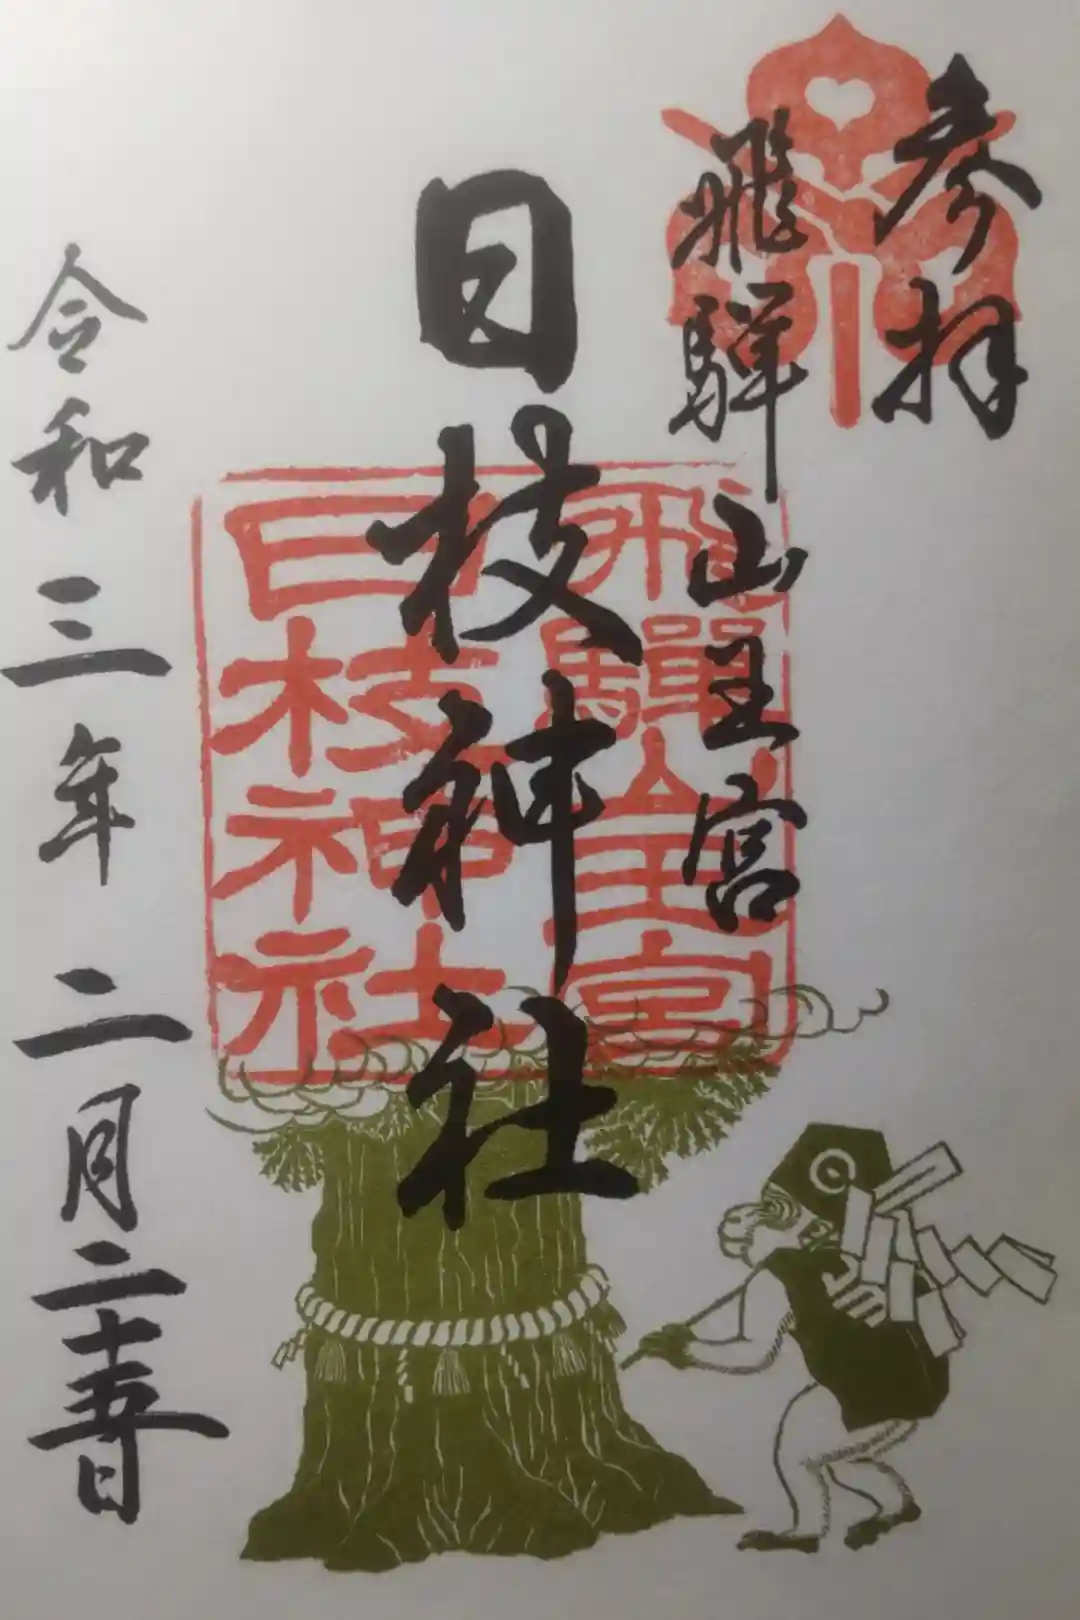 参拝
飛騨山王宮
日枝神社
令和三年二月二十五日
飛驒山王宮
日枝神社